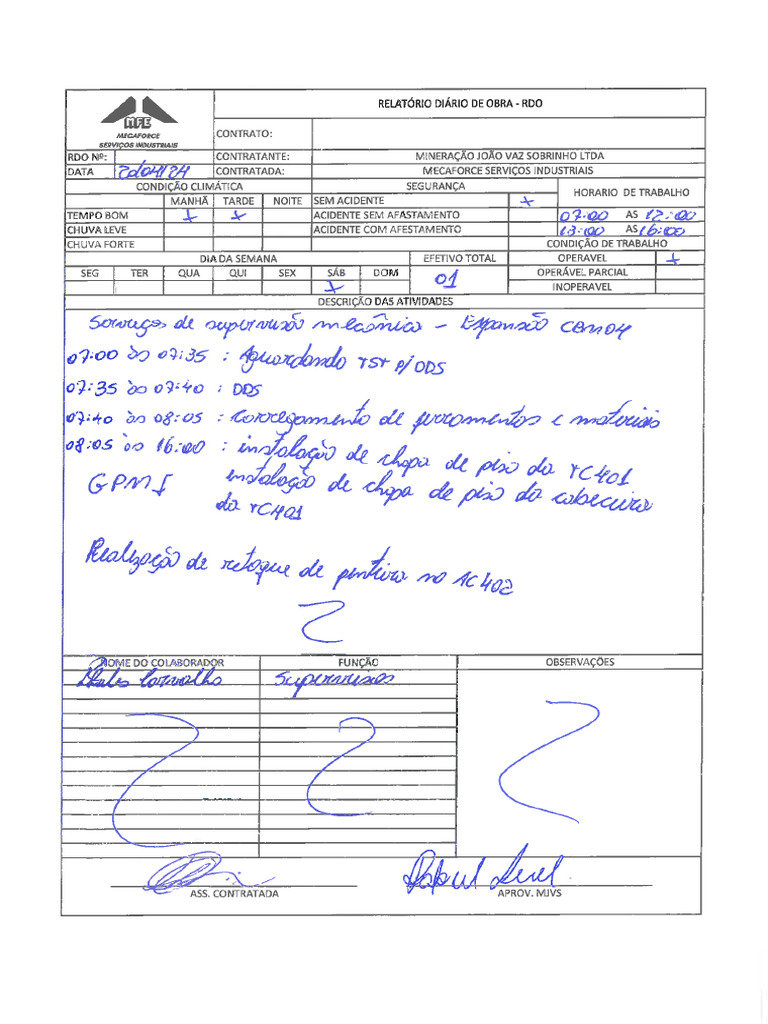 MFE
MEGAFORCE
SERVIÇOS INDUSTRIAIS
RELATÓRIO DIÁRIO DE OBRA - RDO
CONTRATO:
RDO Nº:
CONTRATANTE: MINERAÇÃO JOÃO VAZ SOBRINHO LTDA
DATA 20/04/24 CONTRATADA: MEGAFORCE SERVIÇOS INDUSTRIAIS
CONDIÇÃO CLIMÁTICA SEGURANÇA HORARIO DE TRABALHO
MANHÃ TARDE NOITE SEM ACIDENTE +
TEMPO BOM + + ACIDENTE SEM AFASTAMENTO 07:00 AS 12:00
CHUVA LEVE ACIDENTE COM AFESTAMENTO 13:00 AS 16:00
CHUVA FORTE CONDIÇÃO DE TRABALHO
DIA DA SEMANA EFETIVO TOTAL OPERAVEL +
SEG TER QUA QUI SEX SÁB DOM 01 OPERÁVEL PARCIAL
+ INOPERAVEL
DESCRIÇÃO DAS ATIVIDADES
Serviços de supervisão mecânica - Expansão CBM04
07:00 às 07:35 : Aguardando TST p/ DDS
07:35 às 07:40 : DDS
07:40 às 08:05 : carregamento de ferramentas e materiais
08:05 às 16:00 : instalação de chapa de piso da TC401
GPMI instalação de chapa de piso da cabeceira
da TC401
Realização de retoque de pintura no TC402
NOME DO COLABORADOR FUNÇÃO OBSERVAÇÕES
Carvalho Supervisor
ASS. CONTRATADA APROV. MJVS